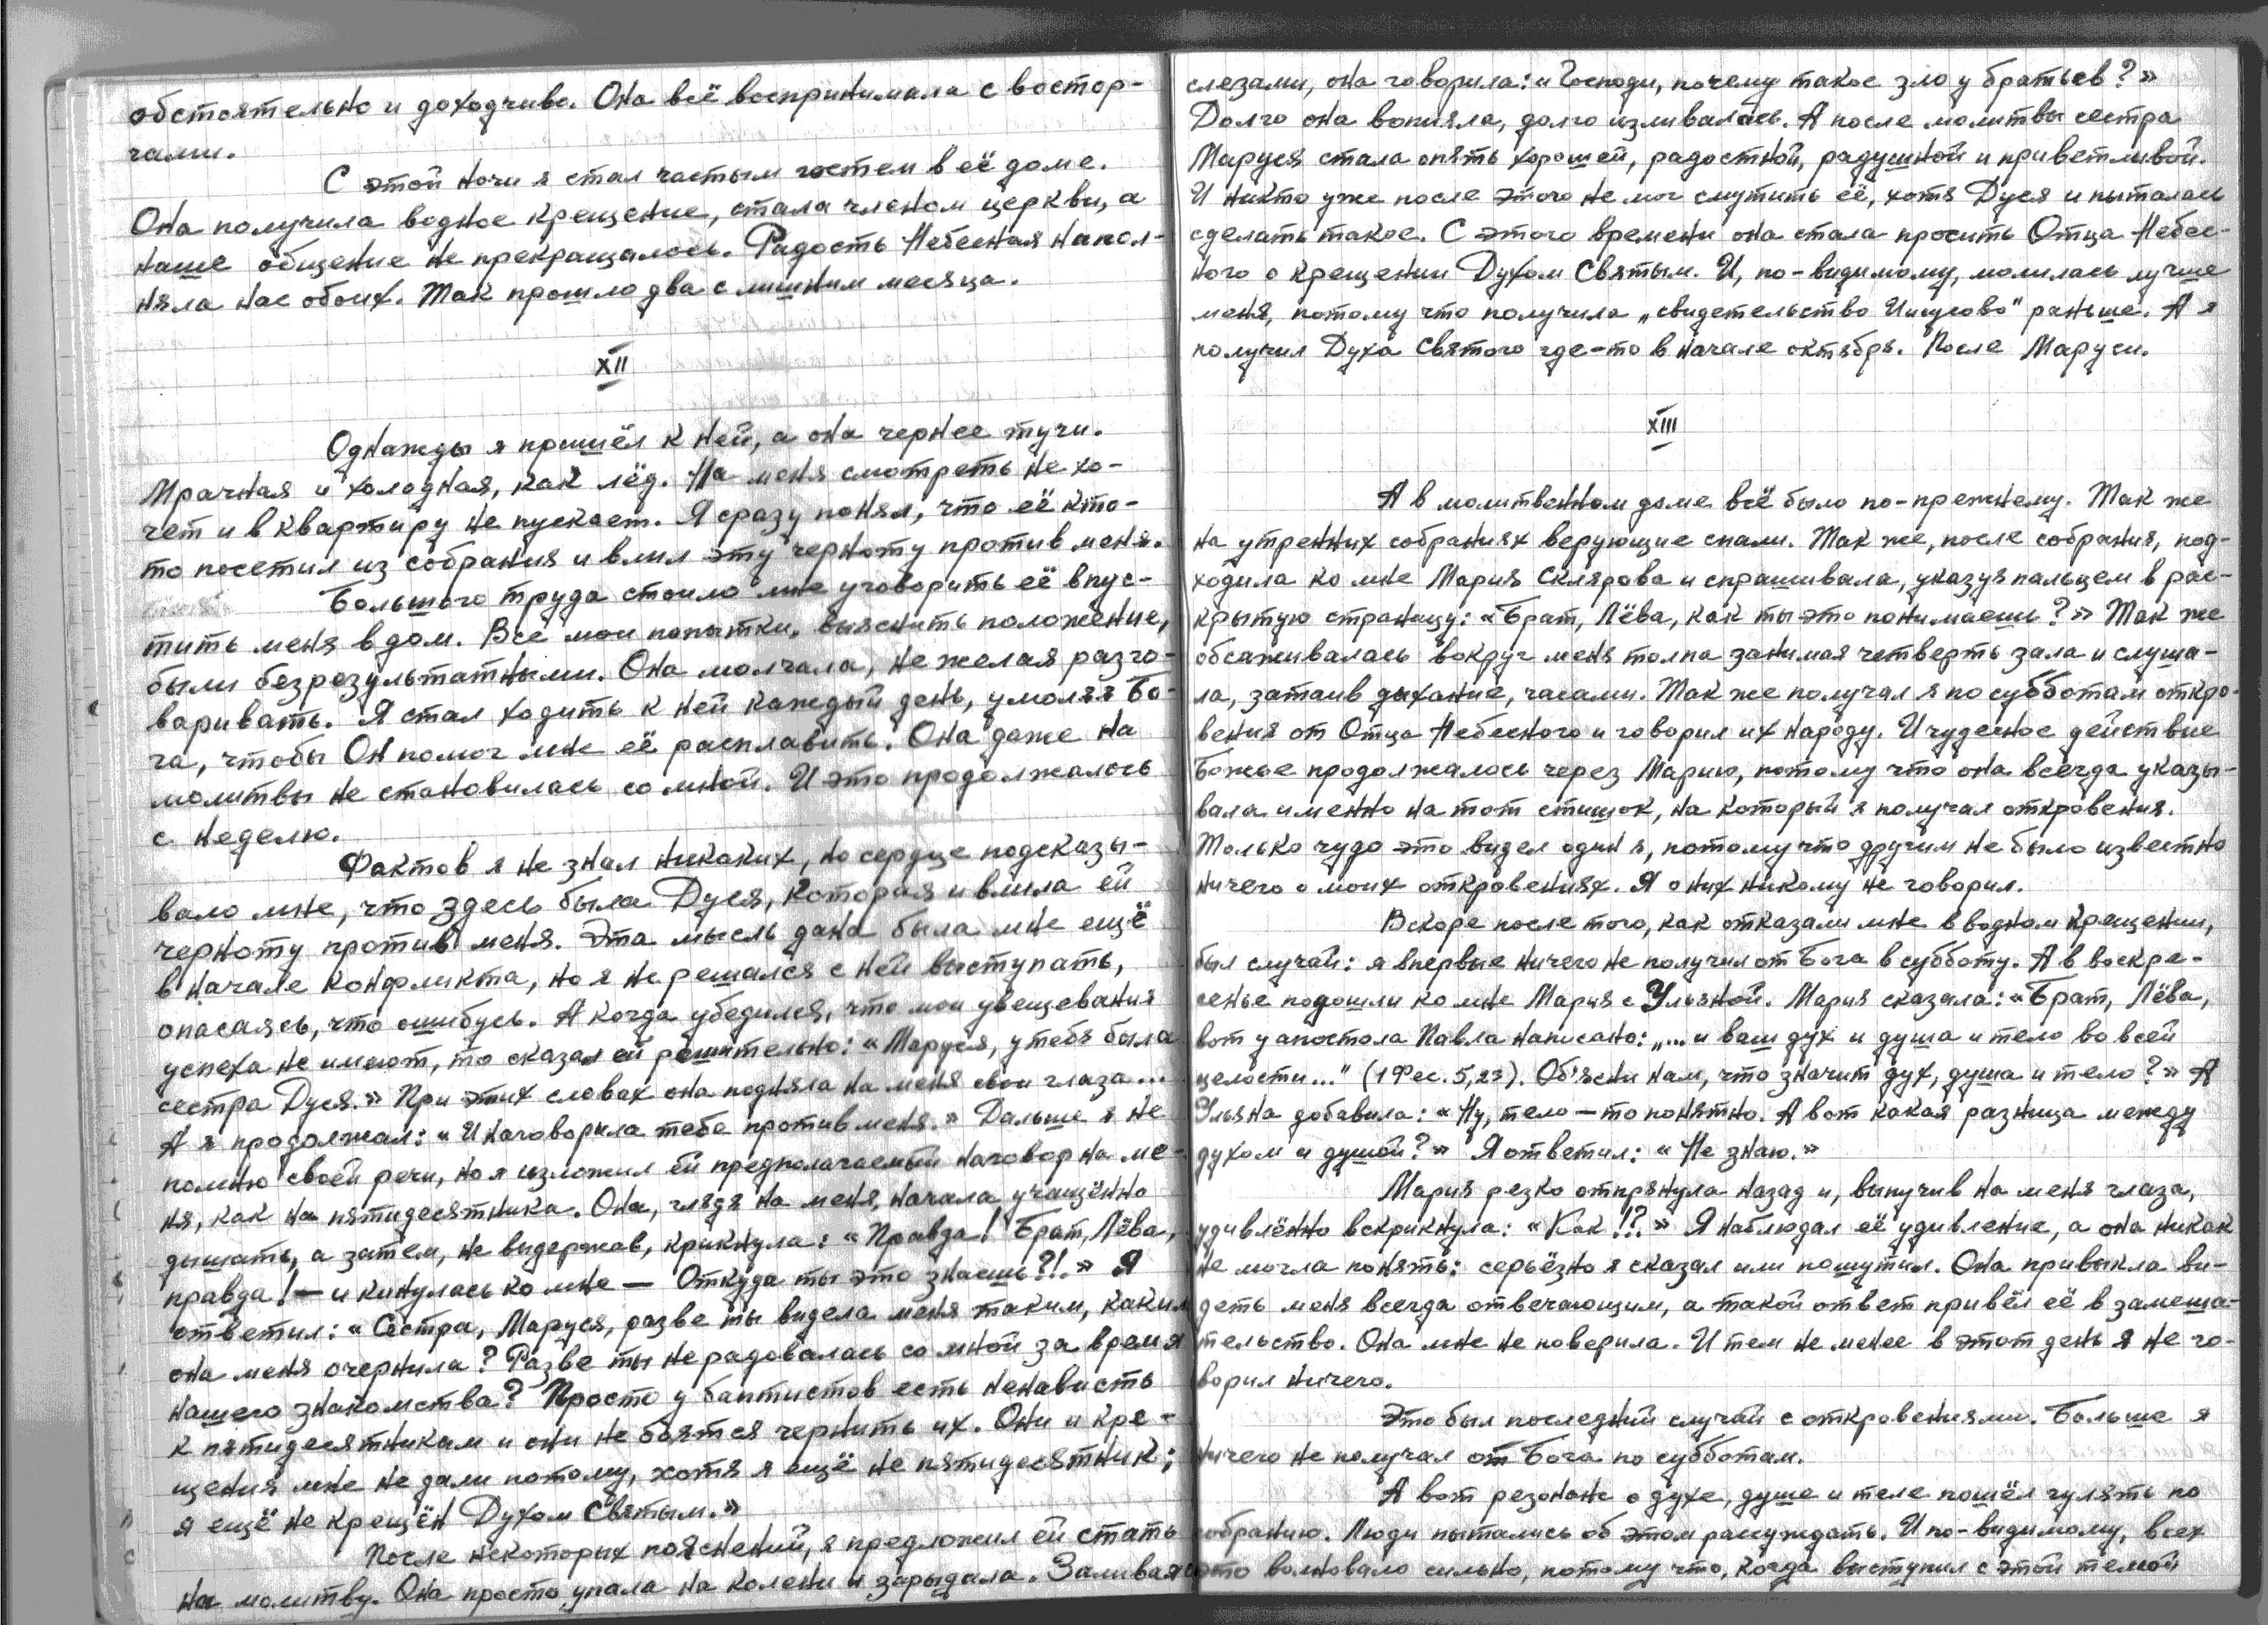 обстоятельно и доходчиво. Она всё воспринимала с востор-
гами.
С этой ночи я стал частым гостем в её доме.
Она получила водное крещение, стала членом церкви, а
наше общение не прекращалось. Радость Небесная напол-
няла нас обоих. Так прошло два с лишним месяца.
XII
Однажды я пришёл к ней, а она чернее тучи.
Мрачная и холодная, как лёд. На меня смотреть не хо-
чет и в квартиру не пускает. Я сразу понял, что её кто-
то посетил из собрания и влил эту черноту против меня.
Большого труда стоило мне уговорить её впус-
тить меня в дом. Все мои попытки, выяснить положение,
были безрезультатными. Она молчала, не желая разго-
варивать. Я стал ходить к ней каждый день, умоляя Бо-
га, чтобы Он помог мне её расплавить. Она даже на
молитвы не становилась со мной. И это продолжалось
с неделю.
Фактов я не знал никаких, но сердце подсказы-
вало мне, что здесь была Дуся, которая и влила ей
черноту против меня. Эта мысль дана была мне ещё
в начале конфликта, но я не решался с ней выступать,
опасаясь, что ошибусь. А когда убедился, что мои увещевания
успеха не имеют, то сказал ей решительно: «Маруся, у тебя была
сестра Дуся.» При этих словах она подняла на меня свои глаза...
А я продолжал: «И наговорила тебе против меня.» Дальше я не
помню своей речи, но я изложил ей предполагаемый наговор на ме-
ня, как на пятидесятника. Она, глядя на меня, начала учащённо
дышать, а затем, не выдержав, крикнула: «Правда! Брат, Лёва,
правда! — и кинулась ко мне — Откуда ты это знаешь?!.» Я
ответил: «Сестра, Маруся, разве ты видела меня таким, каким
она меня очернила? Разве ты не радовалась со мной за время
нашего знакомства? Просто у баптистов есть ненависть
к пятидесятникам и они не боятся чернить их. Они и кре-
щения мне не дали потому, хотя я ещё не пятидесятник;
я ещё не крещён Духом Святым.»
После некоторых пояснений, я предложил ей стать
на молитву. Она просто упала на колени и зарыдала. Заливаясь
слезами, она говорила: «Господи, почему такое зло у братьев?»
Долго она вопияла, долго изливалась. А после молитвы сестра
Маруся стала опять хорошей, радостной, радушной и приветливой.
И никто уже после этого не мог смутить её, хотя Дуся и пыталась
сделать такое. С этого времени она стала просить Отца Небес-
ного о крещении Духом Святым. И, по-видимому, молилась лучше
меня, потому что получила „свидетельство Иисусово" раньше. А я
получил Духа Святого где-то в начале октября. После Маруси.
XIII
А в молитвенном доме всё было по-прежнему. Так же
на утренних собраниях верующие спали. Так же, после собрания, под-
ходила ко мне Мария Склярова и спрашивала, указуя пальцем в рас-
крытую страницу: «Брат, Лёва, как ты это понимаешь?» Так же
обсаживалась вокруг меня толпа занимая четверть зала и слуша-
ла, затаив дыхание, часами. Так же получал я по субботам откро-
вения от Отца Небесного и говорил их народу. И чудесное действие
Божье продолжалось через Марию, потому что она всегда указы-
вала именно на тот стишок, на который я получал откровения.
Только чудо это видел один я, потому что другим не было известно
ничего о моих откровениях. Я о них никому не говорил.
Вскоре после того, как отказали мне в водном крещении,
был случай: я впервые ничего не получил от Бога в субботу. А в воскре-
сенье подошли ко мне Мария с Ульяной. Мария сказала: «Брат, Лёва,
вот у апостола Павла написано: „... и ваш дух и душа и тело во всей
целости..." (1 Фес. 5,23). Об'ясни нам, что значит дух, душа и тело?» А
Ульяна добавила: «Ну, тело — то понятно. А вот какая разница между
духом и душой?» Я ответил: «Не знаю.»
Мария резко отпрянула назад и, выпучив на меня глаза,
удивлённо вскрикнула: «Как!?.» Я наблюдал её удивление, а она никак
не могла понять: серьёзно я сказал или пошутил. Она привыкла ви-
деть меня всегда отвечающим, а такой ответ привёл её в замеша-
тельство. Она мне не поверила. И тем не менее в этот день я не го-
ворил ничего.
Это был последний случай с откровениями. Больше я
ничего не получал от Бога по субботам.
А вот резонанс о духе, душе и теле пошёл гулять по
собранию. Люди пытались об этом рассуждать. И по-видимому, всех
это волновало сильно, потому что, когда выступил с этой темой